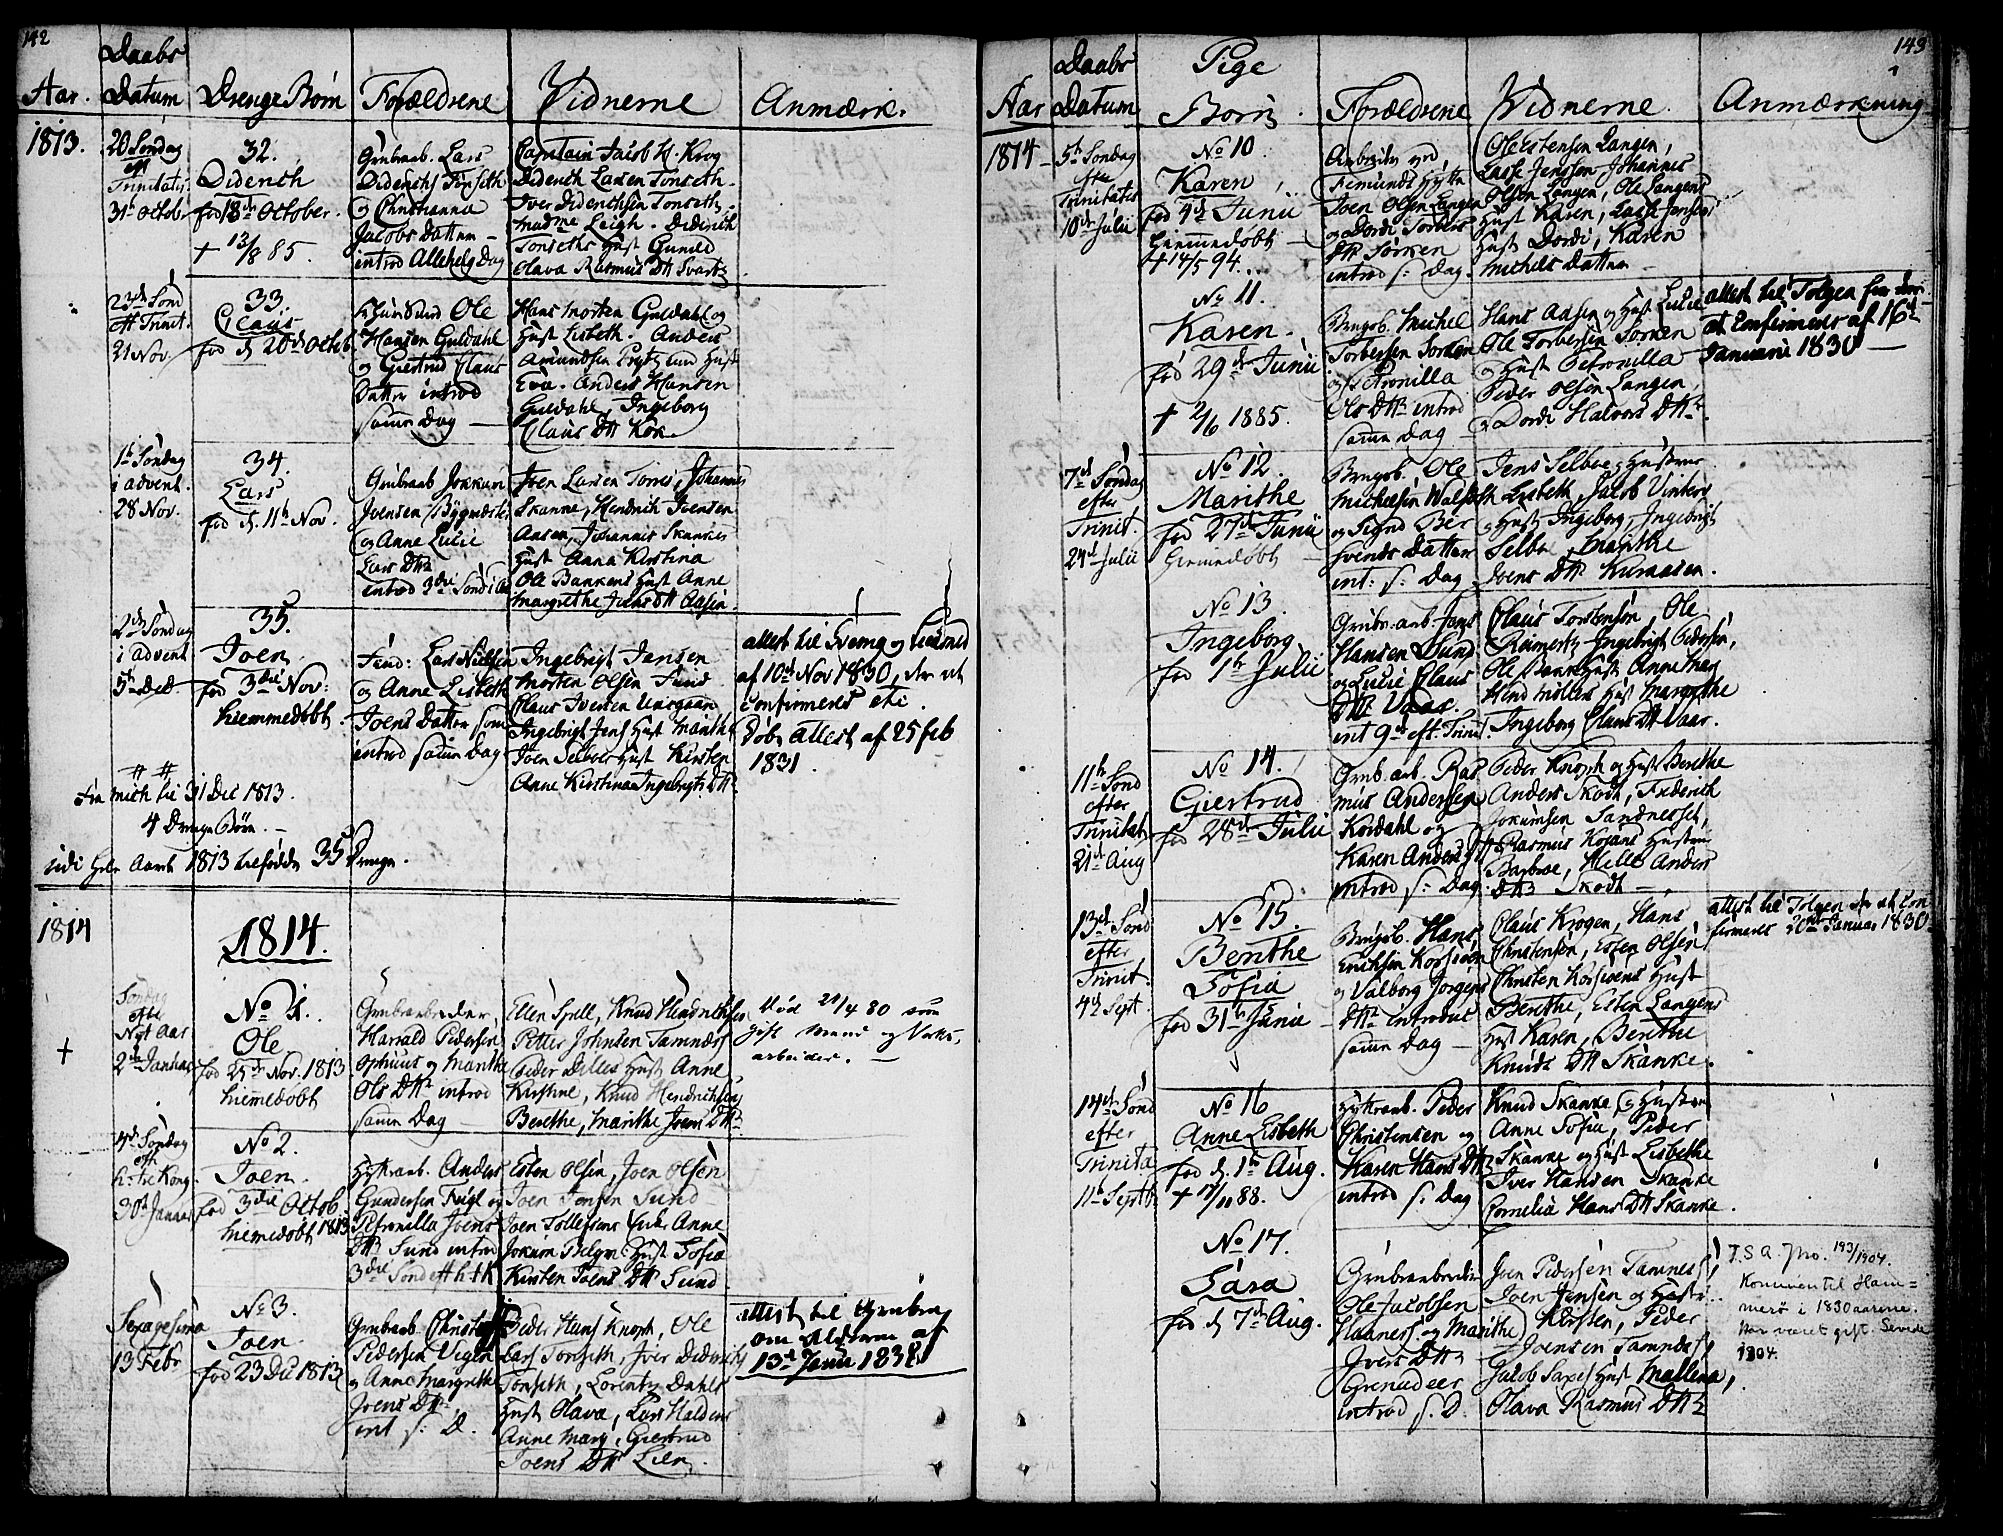 142
Daabs
Aar. Datum Drenge Børn Forældrene Vidnerne Anmærk.
1813.
20 Søndag
eft
Trinitatis
31th October
32.
Diderich
fød 18de October.
+ 13/8 85.
Grubearb. Lars
Diderichs Tønseth
og Christianna
Jacobs Datter
introd Allehelg Dag
Captain Jacob H. Krog
Diderich Larsen Tønseth.
Iver Diderichsen Tønseth
madme Leigh. Diderich
Tønseths Hust Gunild
Olava Rasmus Dtt Svartz
23de Sønd
eft Trinit.
21 Nov.
33.
Claus
fød d 20de Octob
Ole
Hansen Guldahl
og Giertrud Claus
Datter introd
samme Dag
Hans Morten Guldahl og
Hust Lisbeth. Anders
Amundsen Prytz und Hust
Eva. Anders Hansen
Guldahl, Ingeborg
Claus Dtt Kok
1te Søndag
i advent.
28 Nov.
34.
Lars
fød d. 11th Nov.
Grubearb Jokkum
Joensen Bygmester
og Anne Lucie
Lars Dtt
introd 3die Sønd i Ad
Joen Larsen Torres, Johannes
Skanke, Hendrik Joensen
Aasen, Johannes Skankes
Hust Anna Kirstina
Ole Bankens Hust Anne
Margrethe Jens Dtt Aasen.
2de Søndag
i advent
5th Dec
35.
Joen
fød 3die Nov:
hiemmedøbt
Lars Nielsen
og Anne Lisbeth
Joens Datter
introd samme Dag
Ingebrigt Jansen
Morten Olsen Sund.
Claus Iversen Uusgaan
Ingebrigt Jens Hust Marith
Joen Selboes Hust Kirsten
Anne Kirstina Ingebrigts Dtt
attest til
af 10de Nov 1830, for at
confirmeres etc.
Døbe attest af 25 feb
1831.
Fra mich til 31 Dec 1813.
4 Drenge Børn. —
Aaret 1813 35 Drenge.
1814
1814.
Søndag
efter
Nyt Aar
2den Januar
+
No 1.
Ole
fød 25de Nov. 1813
hiemedøbt
Grubearbeider
Harrald Pedersen
Ophuus og Marithe
Ols Dtt introd
samme Dag
Ellen Spell, Knud Hendrichsen
Petter Johnsen Tamnæs
Peder Dilles Hust Anne
Kirstine, Knud Hendrichsens
Berethe, Marithe Joens Dtt
død 21/4 80 som
gift Mand og Værks-
arbeider. —
4de Søndag
eft
h: tre Kong.
30te Januar
No 2.
Joen.
fød 3die Octob.
hiemedøbt 1813
Hyttearb. Anders
Gundersen Feigt og
Petronilla Joens
Dtt Sund introd
3die Sønd eft h3K
Esten Olsen, Joen Olsen
Joen Jensen Sund
Joen Tollefsens Anne
Jokum Bygm: Hust Sofia
Kirsten Joens Dtt Sund
Sexagesima
13 Febr
No 3.
Joen
fød 23 Dec 1813
Grubearb. Christen
Pedersen Vigen
og Anne Margrethe
Joens Dtt.
int s. D.
Peder Hans Knoph, Ole
Lars Tønseth, Iver Diderich
Tønseth, Lorentz Dahls
Hust Olava, Lars Haldens
Anne Marg, Giertrud
Joens Dtt Lien.
attest til Grubeng
om Alderen af
13de Janu 1838
143
Daabs Pige
Aar Datum Børn Forældrene Vidnerne. Anmærkning
1814
5te Søndag
efter
Trinitatis
10de Julii
No 10
Karen
fød 4de Junii
hiemmedøbt
+ 14/5 94.
Arbeider ved
Femunds Hytte
Joen Olsen Langen
og Dordi Torbers
Dtt Sørken
introd s: Dag.
Ole Estensen Langen,
Lasse Jensson Johannes
Olsen Langen, Ole Langens
Hust Karen, Lasse Jensens
Hust Dordi, Karen
Michels Datter
No 11.
Karen.
fød 29de Junii
+ 2/6 1885.
Brugsb. Michel
Torbersen Sørken
og Petronilla
Ols Dtt introd
samme Dag
Hans Aasen og Hust Lucie
Ole Torbersen Sørken
og Hust Petronilla
Peder Olsen Langen,
Dordi Halvors Dtt.
attest til Tolgen for der
at confirmeres af 16de
Januarii 1830 —
7de Søndag
efter
Trinit.
24de Julii
No 12.
Marithe
fød 27de Junii
hiemmedøbt
Brugsb. Ole
Michelsen Walset
og Sigrid Ber
svends Datter
int: s: Dag
Jens Selboe og Hustrue
Lisbeth, Jacob Vinters
Hust Ingeborg, Ingebrigt
Selbo, Marithe
Joens Dtt Kuraasen.
No 13.
Ingeborg
fød 1te Julii
Grube-arb. Jens
Hansen Lund
og Lucie Claus
Dtt Vaar.
int 9de eft. Trinit.
Claus Torstensen, Ole
Reimertz, Ingebrigt Pedersen,
Ole Banks Hust Anne Marg
Hust Margrethe
Ingeborg Claus Dtt Vaar.
11te Sønd
efter
Trinitat.
21de Aug
No 14.
Giertrud
fød 28de Julii
Grub. arb. Ras
mus Andersen
Kordahl og
Karen Anders Dtt
introd s: Dag
Peder Knoph og Hust Berethe
Anders Skodt, Frederich
Jokumsen Sandnesset,
Rasmus Kojans Hustrue
Barbroe, Mille Anders
Dtt Skodt —
13de Sønd
efter
Trinit.
4de Sept.
No 15.
Berithe
Sofia
fød 31te Junii
Brugsb. Hans
Erichsen Korssien
og Valborg Jørgens
Dtt introdus
samme Dag
Claus Krogen, Hans
Christensen, Esten Olsen
Christen Korsiens Hust
Berithe, Esten Langens
Hust Karen, Berithe
Knuds Dtt Skanke.
attest til Tolgen for at Con
firmeres 20de Januar 1830
14de Sønd
efter
Trinita
11te Septbr
No 16
Anne Lisbeth
fød d. 1te Aug.
+ 17/11 88.
Hyttearb. Peder
Christensen og
Karen Hans Dtt
introd s: Dag
Knud Skanke og Hustrue
Anne Sofia, Peder
Skanke og Hust Lisbethe
Iver Hansen Skanke
Cornelia Hans Dtt Skanke.
No 17.
Sara
fød d 7de Aug.
Grubearbeider
Ole Jacobsen
Haanes og Marithe
Ivers Dtt
Grenadeer
introd s. D.
Joen Pedersen Tamnes,
Joen Jensen og Hustr.
Kirsten, Peder
Joensen Tamnes,
Jacob Saxes Hust Mallena,
Olava Rasmus Dtt
J.S.A. Jno. 193/1904.
Kommen til Ham=
merø i 1830aarene.
Har været gift. Levede
1904.